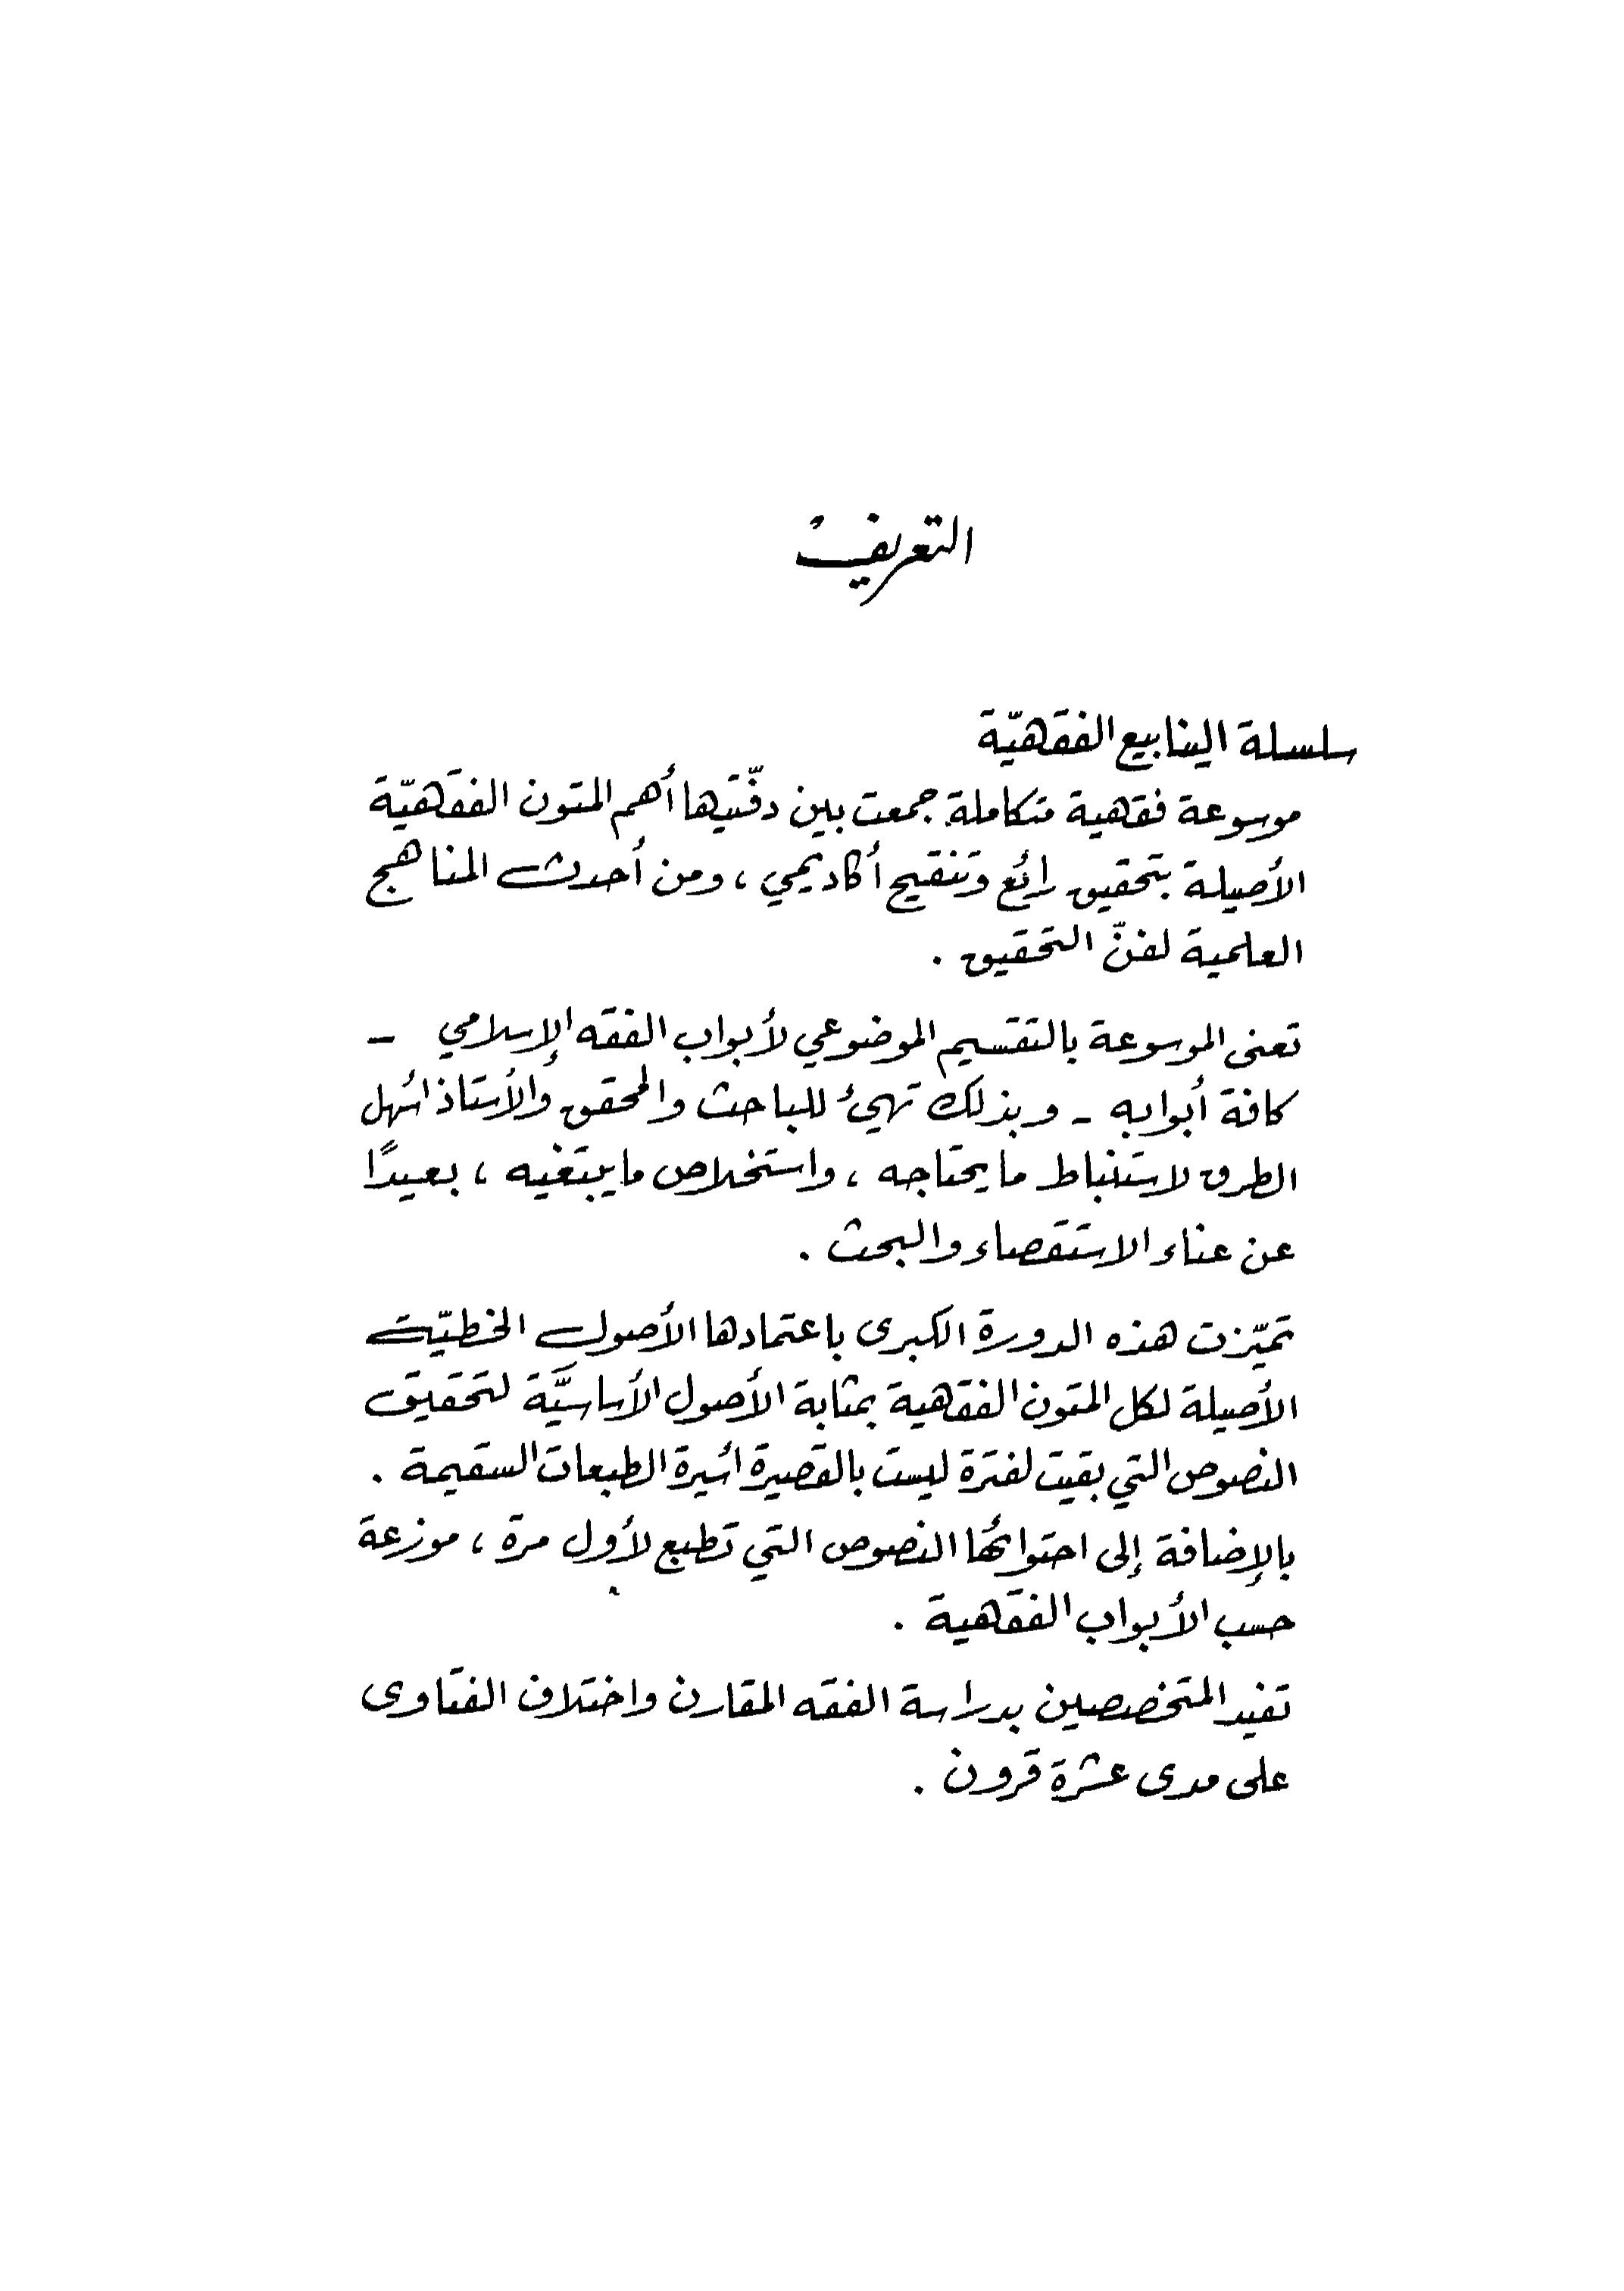 التعريف
سلسلة الينابيع الفقهيّة
موسوعة فقهية متكاملة جمعت بين دفّتيها أهم المتون الفقهيّة
الأصيلة بتحقيق رائع وتنقيح أكاديمي ، ومن أحدث المناهج
العلمية لفنّ التحقيق .
تعنى الموسوعة بالتقسيم الموضوعي لأبواب الفقه الإسلامي -
كافة أبوابه - وبذلك تهيئ للباحث والمحقق والأستاذ أسهل
الطرق لاستنباط ما يحتاجه ، واستخلاص ما يبتغيه ، بعيدًا
عن عناء الاستقصاء والبحث .
تميّزت هذه الدورة الكبرى باعتمادها الأصول الخطيّة
الأصيلة لكل المتون الفقهية بمثابة الأصول الأساسيَّة لتحقيق
النصوص التي بقيت لفترة ليست بالقصيرة أسيرة الطبعات السقيمة .
بالإضافة إلى احتوائها النصوص التي تطبع لأول مرة ، موزعة
حسب الأبواب الفقهية .
تفيد المتخصصين بدراسة الفقه المقارن واختلاف الفتاوى
على مدى عشرة قرون .